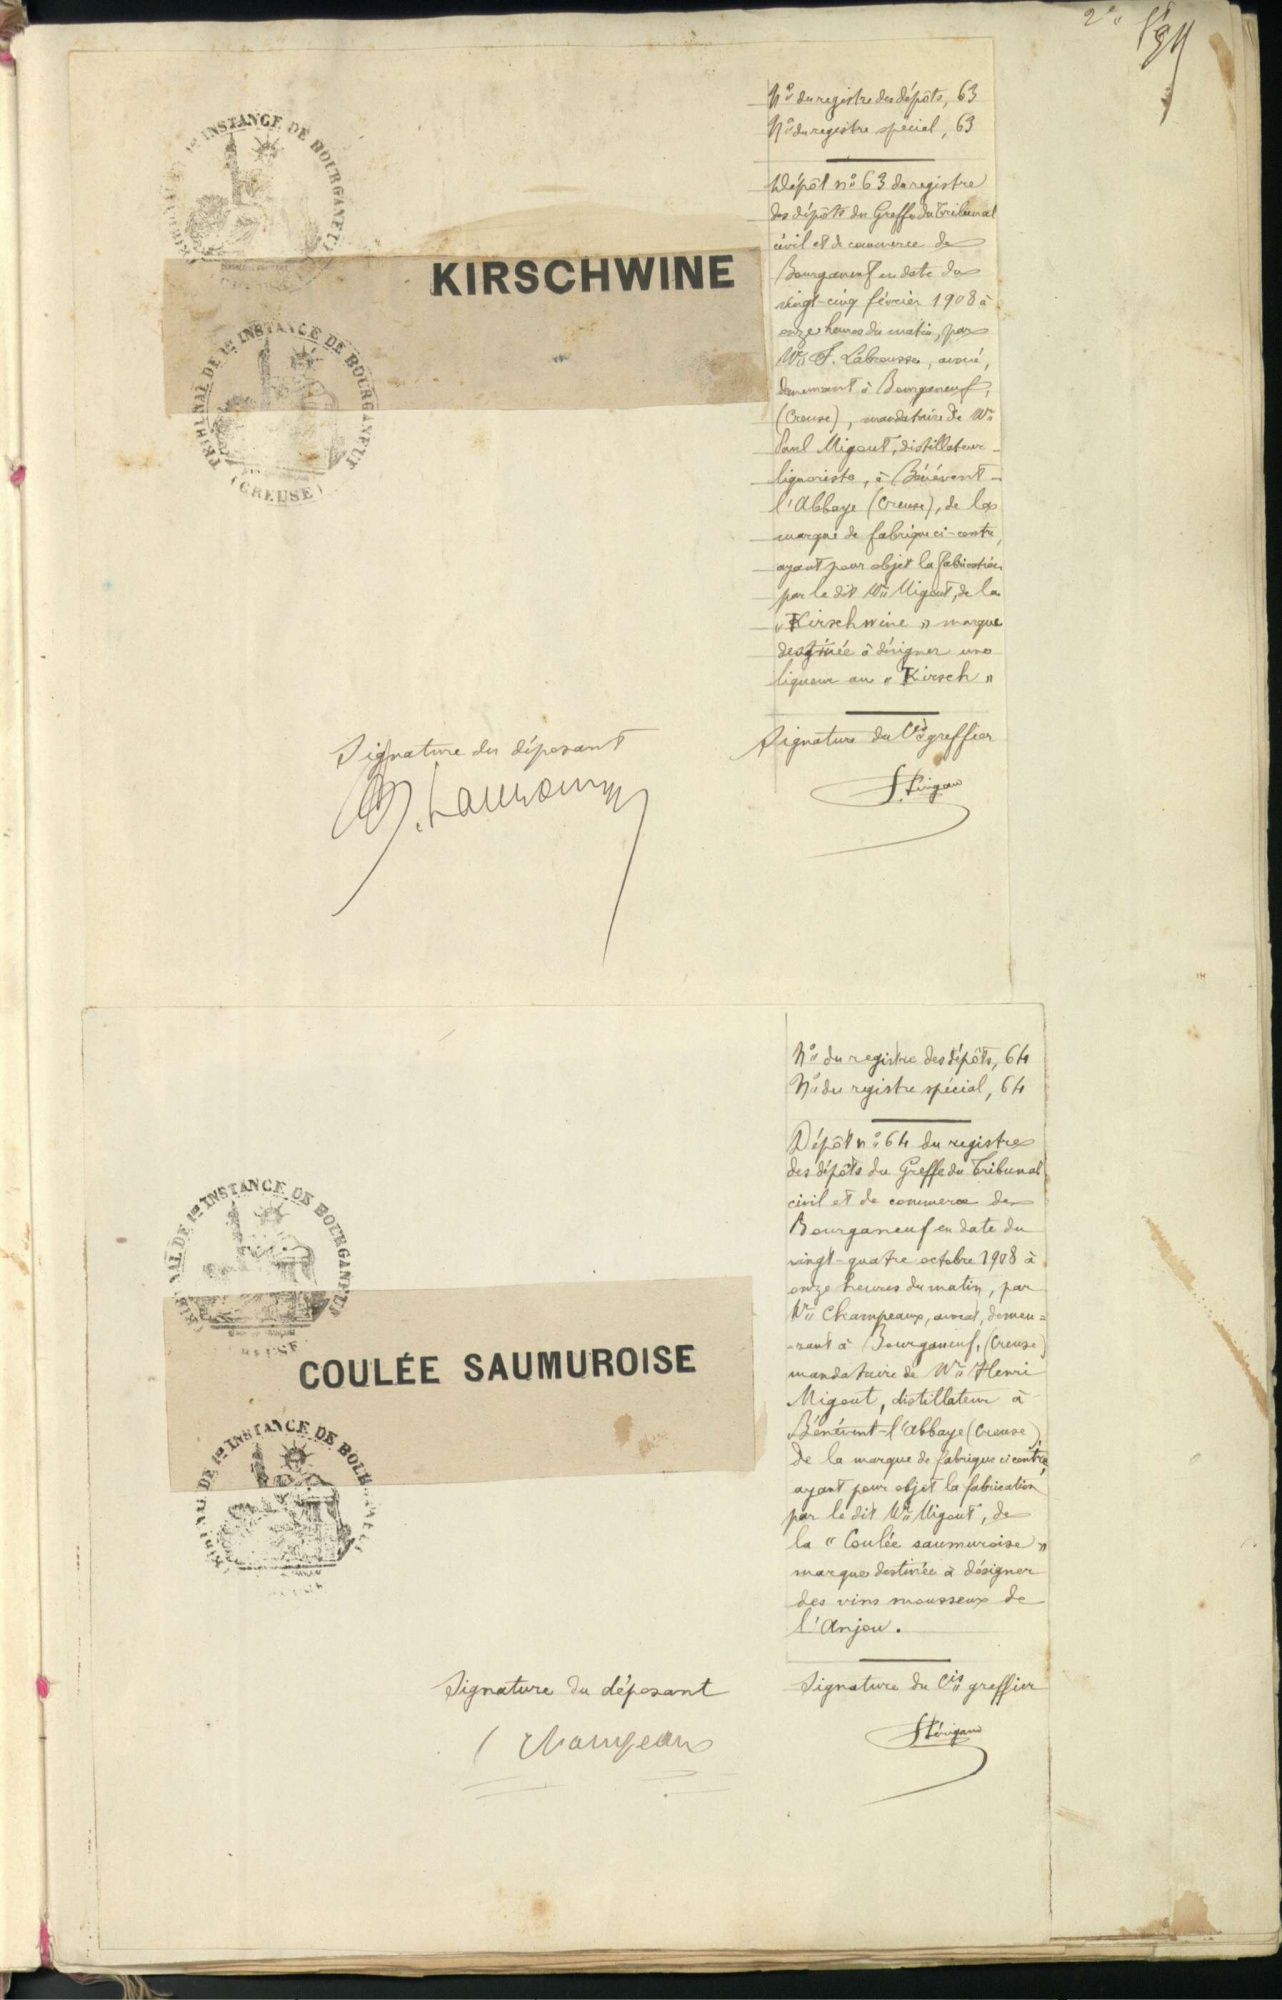 TRIBUNAL DE 1re INSTANCE DE BOURGANEUF
KIRSCHWINE
TRIBUNAL DE 1re INSTANCE DE BOURGANEUF
(CREUSE)
Signature du déposant
No du registre des dépôts, 63
No du registre spécial, 63
Dépôt no 63 du registre
des dépôts du Greffe du Tribunal
civil et de commerce de
Bourganeuf en date du
vingt-cinq février 1908 à
onze heures du matin, par
Mr F. Labrousse, avoué,
demeurant à Bourganeuf,
(Creuse), mandataire de Mr
Paul Migout, distillateur-
liquoriste, à Bénévent-
l'Abbaye (Creuse), de la
marque de fabrique ci-contre,
ayant pour objet la fabrication
par le dit Mr Migout, de la
"Kirschwine" marque
destinée à désigner une
liqueur au "Kirsch"
Signature du Cis greffier
TRIBUNAL DE 1re INSTANCE DE BOURGANEUF
COULÉE SAUMUROISE
TRIBUNAL DE 1re INSTANCE DE BOURGANEUF
Signature du déposant
Champeaux
No du registre des dépôts, 64
No du registre spécial, 64
Dépôt no 64 du registre
des dépôts du Greffe du Tribunal
civil et de commerce de
Bourganeuf en date du
vingt-quatre octobre 1908 à
onze heures du matin, par
Mr Champeaux, avocat, demeu=
=rant à Bourganeuf, (Creuse)
mandataire de Mr Henri
Migout, distillateur à
Bénévent-l'Abbaye (Creuse),
de la marque de fabrique ci contre,
ayant pour objet la fabrication
par le dit Mr Migout, de
la "Coulée saumuroise"
marque destinée à désigner
des vins mousseux de
l'Anjou.
Signature du Cis greffier